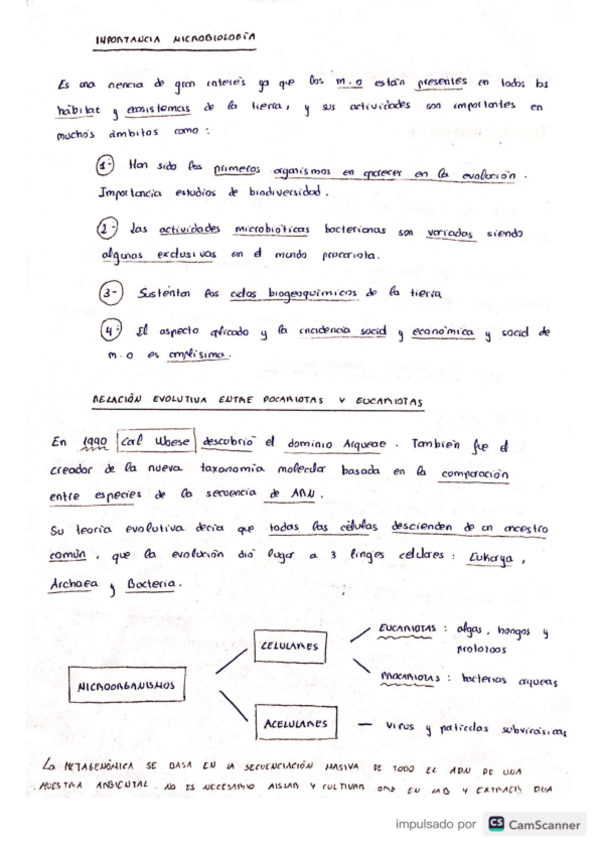 IMPORTANCIA MICROBIOLOGÍA
Es una ciencia de gran interés ya que los m.o están presentes en todos los
hábitat y ecosistemas de la tierra, y sus actividades son importantes en
muchos ámbitos como:
1- Han sido los primeros organismos en aparecer en la evolución.
Importancia estudios de biodiversidad.
2- Las actividades microbióticas bacterianas son variadas siendo
algunas exclusivas en el mundo procariota.
3- Sustentan los ciclos biogeoquímicos de la tierra
4- El aspecto aplicado y la incidencia social y económica y social de
m.o es amplísima.
RELACIÓN EVOLUTIVA ENTRE POCARIOTAS Y EUCARIOTAS
En 1990 Carl Woese descubrió el dominio Arqueae. También fue el
creador de la nueva taxonomía molecular basada en la comparación
entre especies de la secuencia de ARN.
Su teoría evolutiva decía que todas las células descienden de un ancestro
común, que la evolución dió lugar a 3 linges celulares: Eukarya,
Archaea y Bacteria.
MICROORGANISMOS
CELULARES
EUCARIOTAS: algas, hongos y
protozoos
PROCARIOTAS: bacterias arqueas
ACELULARES — virus y partículas subvirásicas
La METAGENÓMICA SE BASA EN LA SECUENCIACIÓN MASIVA DE TODO EL ADN DE UNA
MUESTRA AMBIENTAL. NO ES NECESARIO AISLAR Y CULTIVAR EN LAB Y EXTRAER
impulsado por CS CamScanner